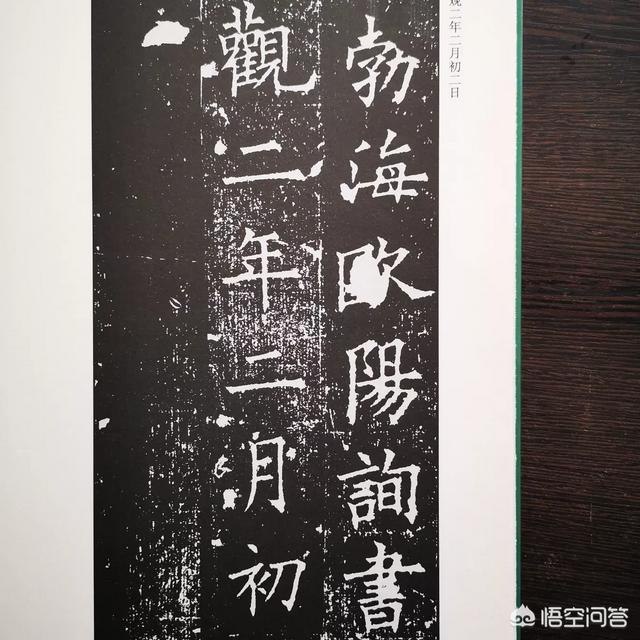 观二年二月初二日
勃海欧陽詢書
觀二年二月初
悟空问答